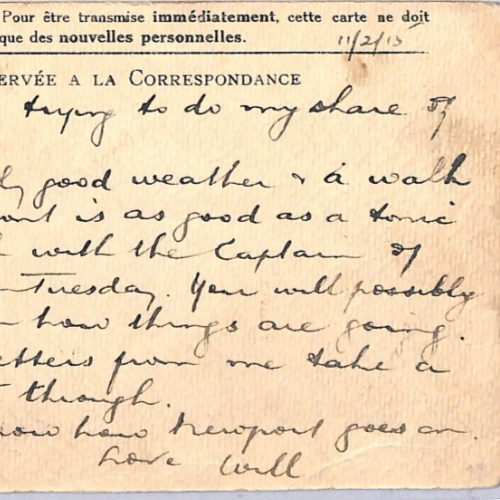 Pour être transmise immédiatement, cette carte ne doit
que des nouvelles personnelles.
11/2/15
ERVÉE A LA CORRESPONDANCE
trying to do my share of
good weather & a walk
is as good as a tonic
with the Captain of
Tuesday. You will possibly
how things are going.
letters from me take a
through.
how Newport goes on.
Love Will